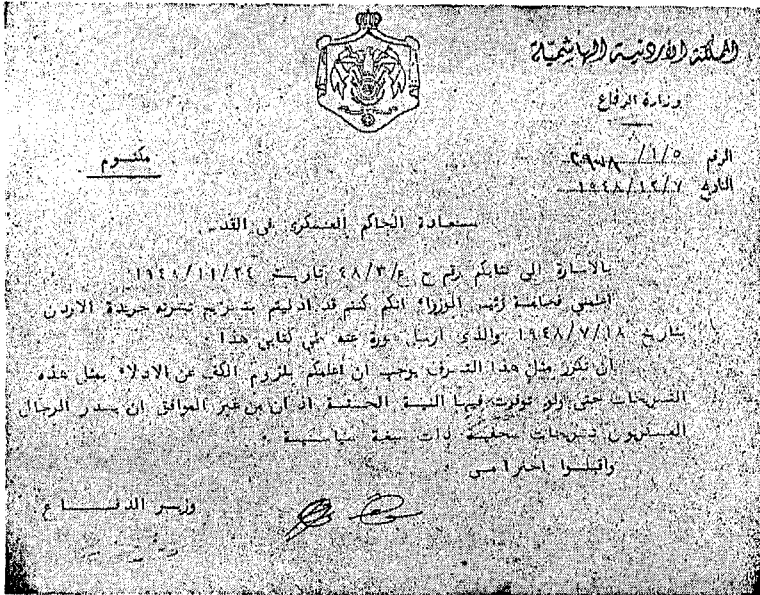 المملكة الأردنية الهاشمية
وزارة الدفاع
الرقم ١/٥/
التاريخ ١٩٤٨/١٢/٧
مكتوم
سعادة الحاكم العسكري في القدس
بالاشارة الى كتابكم رقم ح ع/٤٨/٣ تاريخ ١٩٤٨/١١/٢٤
اعلمني فخامة رئيس الوزراء انكم كنتم قد ادليتم بتصريح نشرته جريدة الاردن
بتاريخ ١٩٤٨/٧/١٨ والذي ارسل صورة عنه طي كتابي هذا ٠
ان تكرر مثل هذا التصرف يوجب ان اعلمكم بلزوم الكف عن الادلاء بمثل هذه
التصريحات حتى ولو توفرت فيها النية الحسنة اذ ان من غير الموافق ان يصدر الرجال
العسكريون تصريحات صحفية ذات صبغة سياسية ٠
واقبلوا احترامي
وزير الدفاع